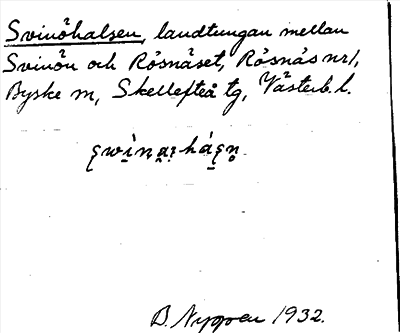 Svinöhalsen, landtungan mellan
Svinön och Rösnäset, Rösnäs nr 1,
Byske m, Skellefteå tg, Västerb. l.
B. Nygren 1932.